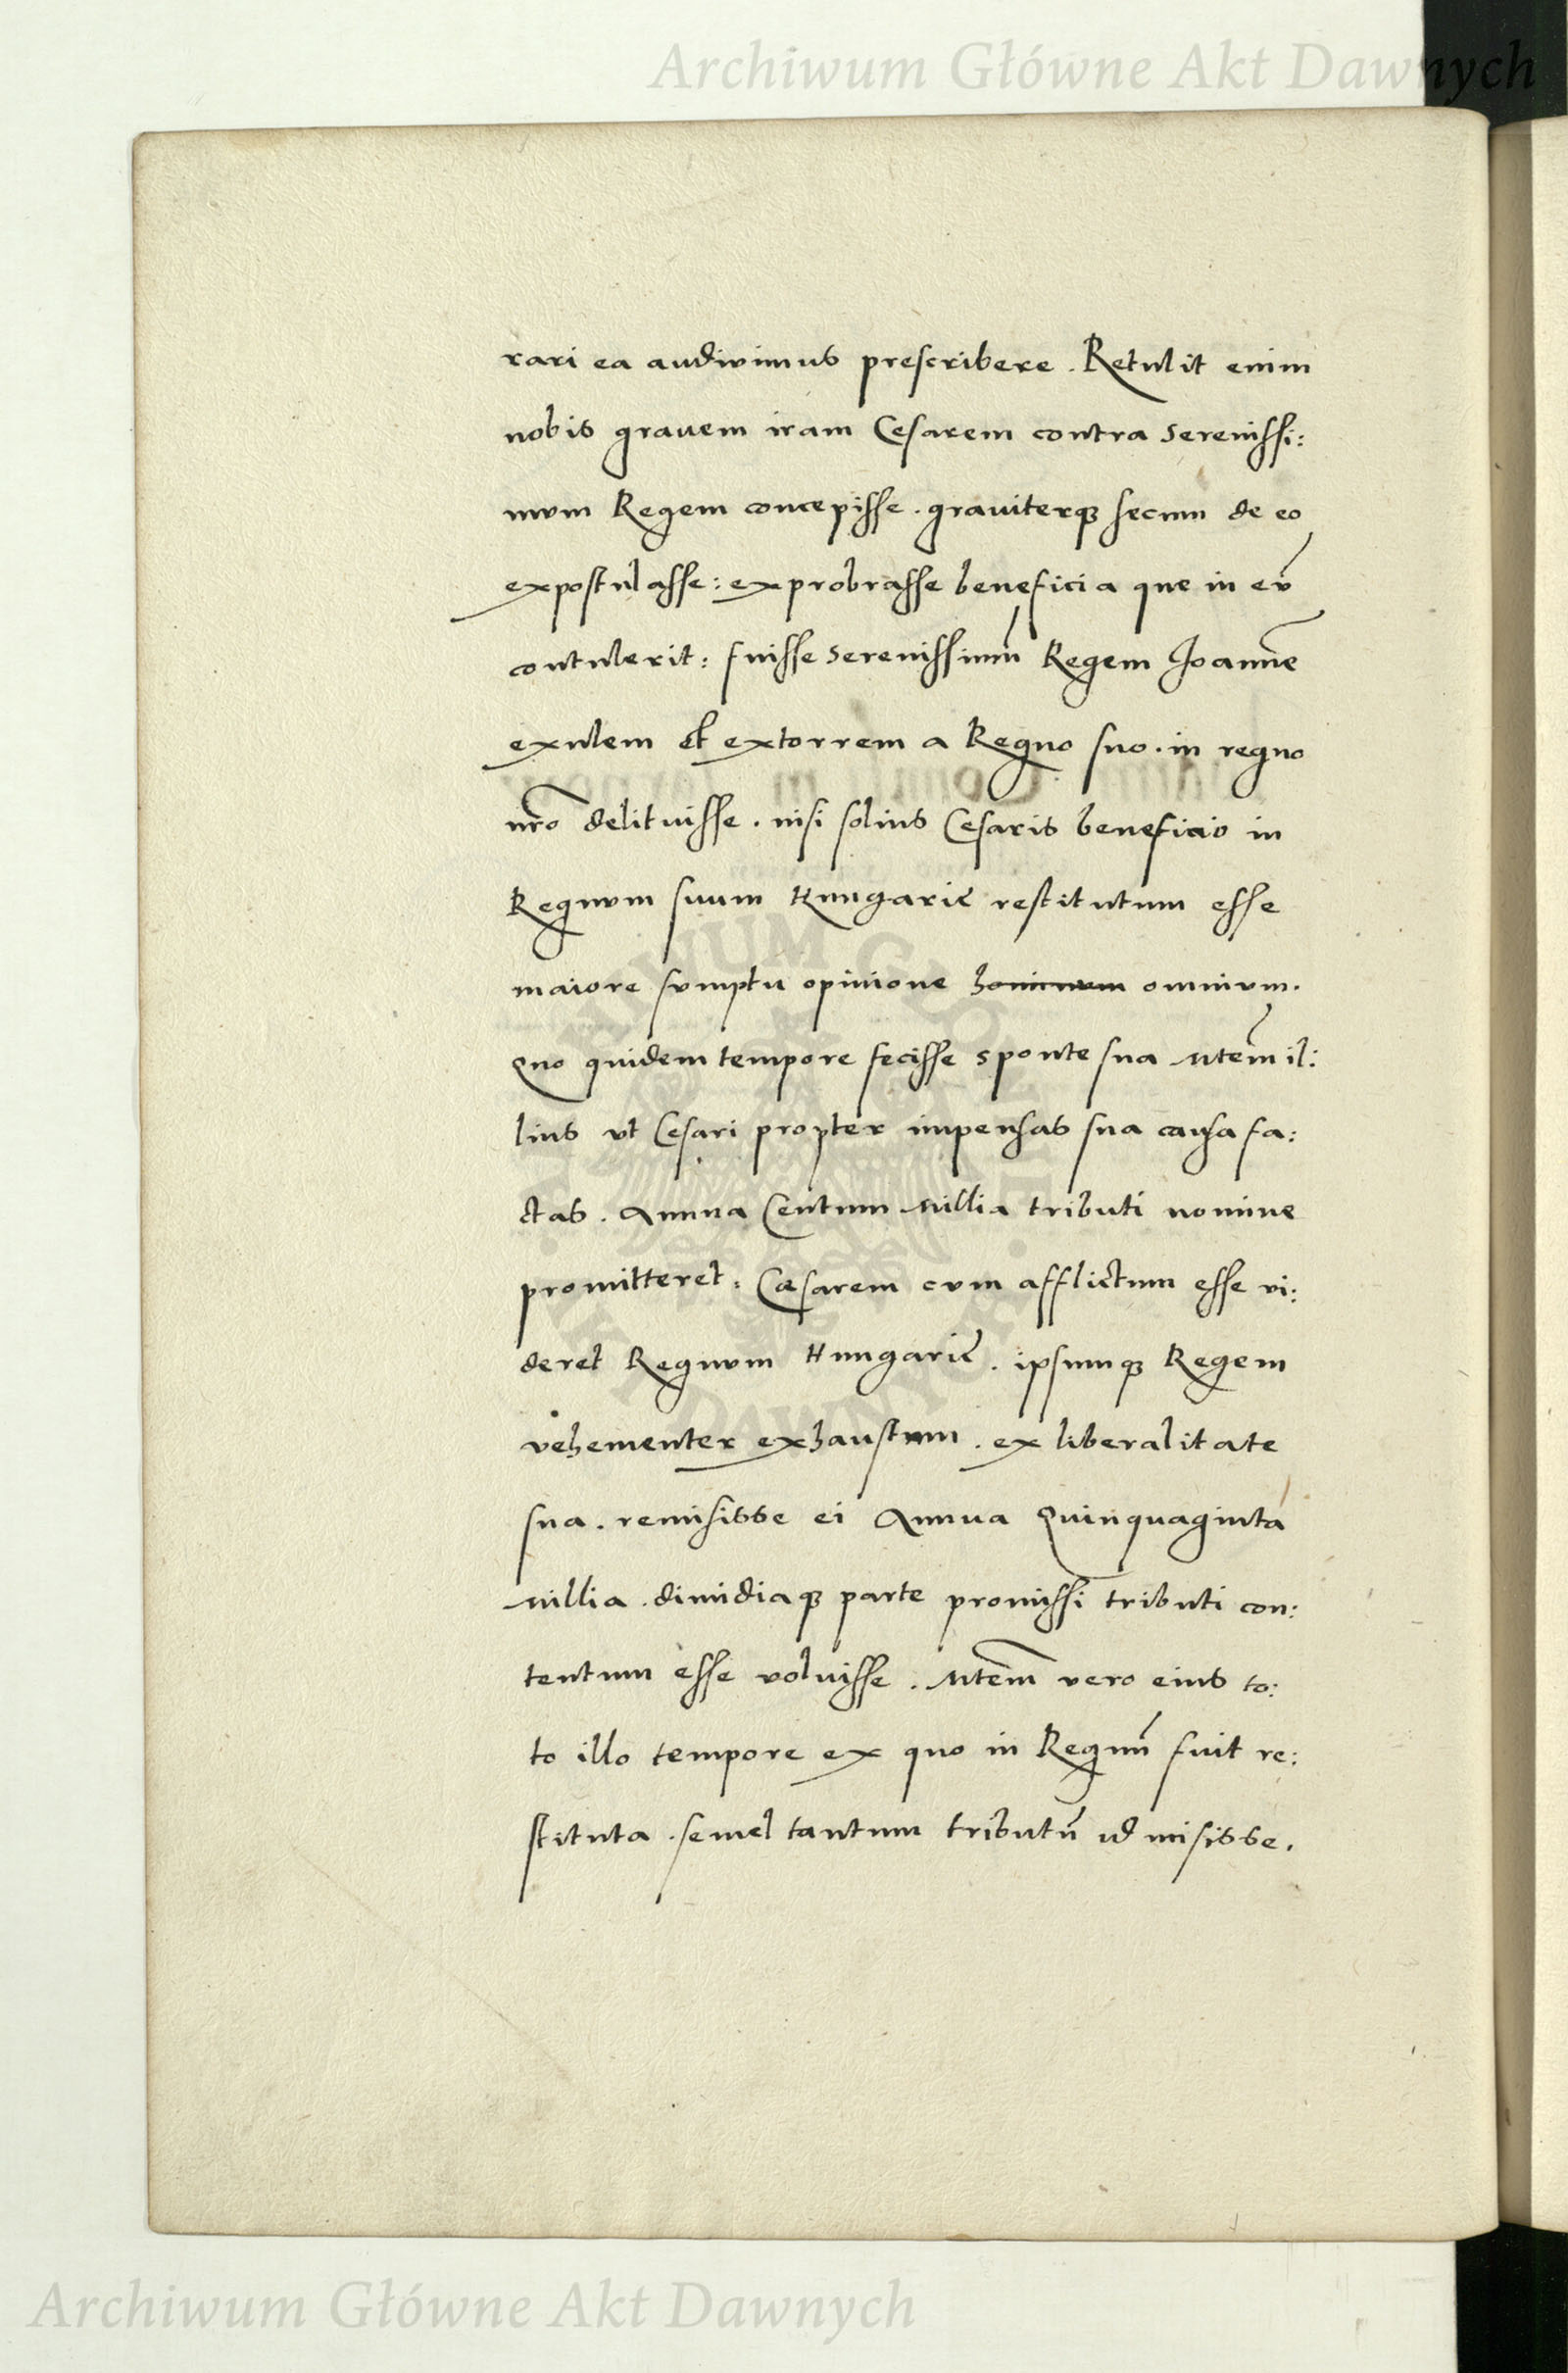 Archiwum Główne Akt Dawnych
rari ea audivimus prescribere . Retulit enim
nobis grauem iram Cesarem contra Serenissi:
mvm Regem concepisse . grauiterq3 secum de eo
expostulasse : exprobrasse beneficia que in eū
contulerit : fuisse Serenissimū Regem Joannē
exulem et extorrem a Regno suo . in regno
nr̄o delituisse . nisi solius Cesaris beneficio in
Regnvm suum Hungarię restitutum esse
maiore svmptu opinione hominvm omnivm .
Quo quidem tempore fecisse sponte sua Mtem̄ il:
lius vt Cesari propter impensas sua causa fa:
ctas . Annua Centum Millia tributi nomine
promitteret : Cæsarem cvm afflictum esse vi:
deret Regnvm Hungarię . ipsumq3 Regem
vehementer exhaustum . ex liberalitate
sua . remisisse ei Annua Quinquaginta
Millia . dimidiaq3 parte promissi tributi con:
tentum esse voluisse . Mtem̄ vero eius to:
to illo tempore ex quo in Regnū fuit re:
stituta . semel tantum tributū id misisse .
Archiwum Główne Akt Dawnych